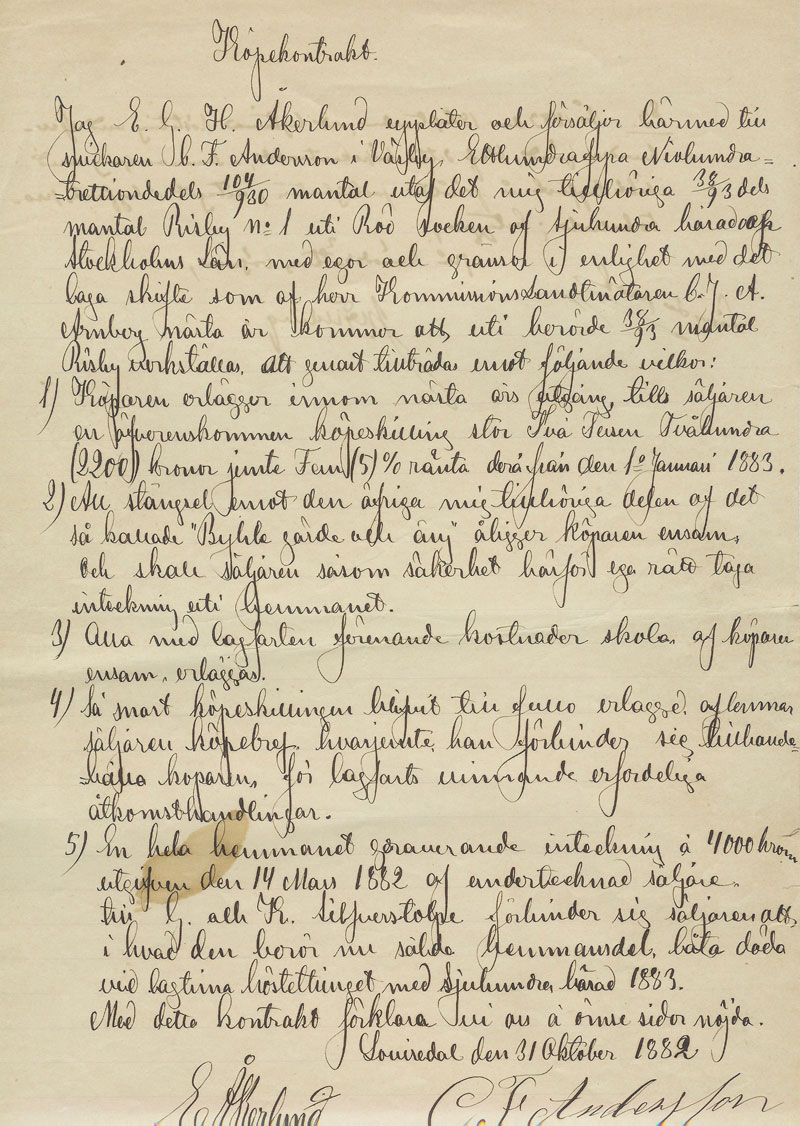 Köpekontrakt.
Jag E. G. H. Åkerlund upplåter och försäljer härmed till
snickaren C. F. Andersson i Väsby, Etthundrafyra Niohundra-
-trettiondedels 104/930 mantal utaf det mig tillhöriga 38/93 dels
mantal Risby No 1 uti Röd socken af Sjuhundra härad och
Stockholms Län, med egor och gränsor i enlighet med det
laga skifte som af herr KommissionsLandtmätaren C. J. A.
Arnberg nästa år kommer att uti berörde 38/93 mantal
Risby verkställas, att genast tillträdas emot följande vilkor:
1) Köparen erlägger innom nästa års utgång, till säljaren
en öfverenskommen köpeskilling stor Två Tusen Tvåhundra
(2200) kronor jemte Fem (5) % ränta derå från den 1o Januari 1883.
2) All stängsel emot den öfriga mig tillhöriga delen af det
så kallade "Byhle gärde och äng" åligger köparen ensam,
Och skall säljaren såsom säkerhet härför ega rätt taga
inteckning uti hemmanet.
3) Alla med lagfarten förenande kostnader skola af köparen
ensam erläggas.
4) Så snart köpeskillingen blifvit till fullo erlagd, aflemnar
säljaren köpebref, hvarjemte han förbinder sig tillhanda-
-hålla köparen, för lagfarts vinnande erforderliga
åtkomsthandlingar.
5) En hela hemmanet graverande inteckning å 4000 kronor
utgifven den 14 Mars 1882 af undertecknad säljare
till G. och K. Silfverstolpe förbinder sig säljaren att,
i hvad den berör nu sålda hemmansdel, låta döda
vid lagtima hösttinget med Sjuhundra härad 1883.
Med detta kontrakt förklara vi oss å ömse sidor nöjda.
Louisedal den 31 Oktober 1882
E Åkerlund C F Andersson